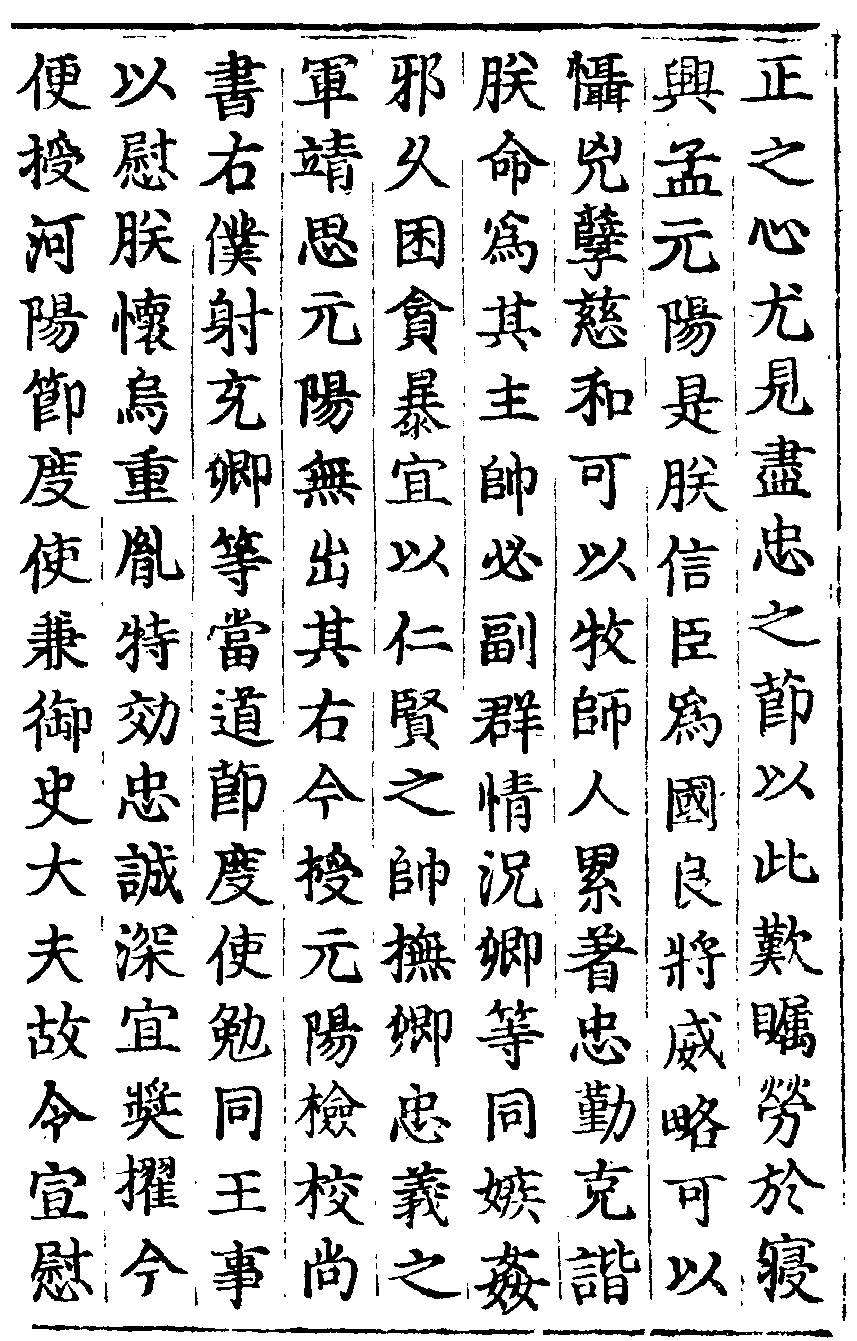 正之心尤見盡忠之節以此歎矚勞於寢
興孟元陽是朕信臣爲國良將威略可以
懾兇孽慈和可以牧師人累著忠勤克諧
朕命爲其主帥必副群情况卿等同嫉姦
邪乆困貪暴宜以仁賢之帥撫卿忠義之
軍靖思元陽無出其右今授元陽檢校尚
書右僕射充卿等當道節度使勉同王事
以慰朕懷烏重胤特効忠誠深宜奬擢今
便授河陽節度使兼御史大夫故令宣慰